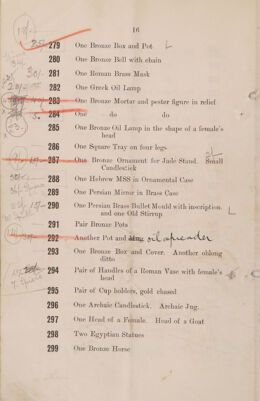 16
279 One Bronze Box and Pot L
280 One Bronze Bell with chain
281 One Roman Brass Mask
282 One Greek Oil Lamp
283 One Bronze Mortar and pester figure in relief
284 One do do
285 One Bronze Oil Lamp in the shape of a female's
head
286 One Square Tray on four legs
287 One Bronze Ornament for Jade Stand. Small
Candlestick
288 One Hebrew MSS in Ornamental Case
289 One Persian Mirror in Brass Case
290 One Persian Brass Bullet Mould with inscription.
and one Old Stirrup L
291 Pair Bronze Pots
292 Another Pot and oil spreader
293 One Bronze Box and Cover. Another oblong
ditto
294 Pair of Handles of a Roman Vase with female's
head
295 Pair of Cup holders, gold chased
296 One Archaic Candlestick. Archaic Jug.
297 One Head of a Female. Head of a Goat
298 Two Egyptian Statues
299 One Bronze Horse